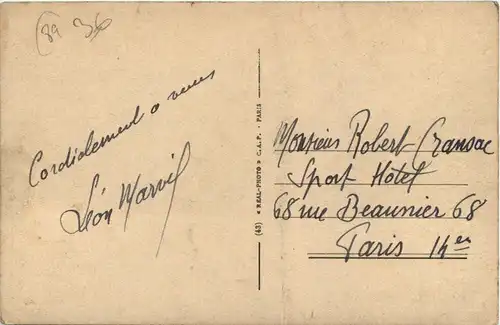 89 36
Cordialement a vous
Léon Marvil
(63) « REAL-PHOTO » C.A.P. - PARIS
Monsieur Robert Cransac
Sport Hôtel
68 rue Beaunier 68
Paris 14er